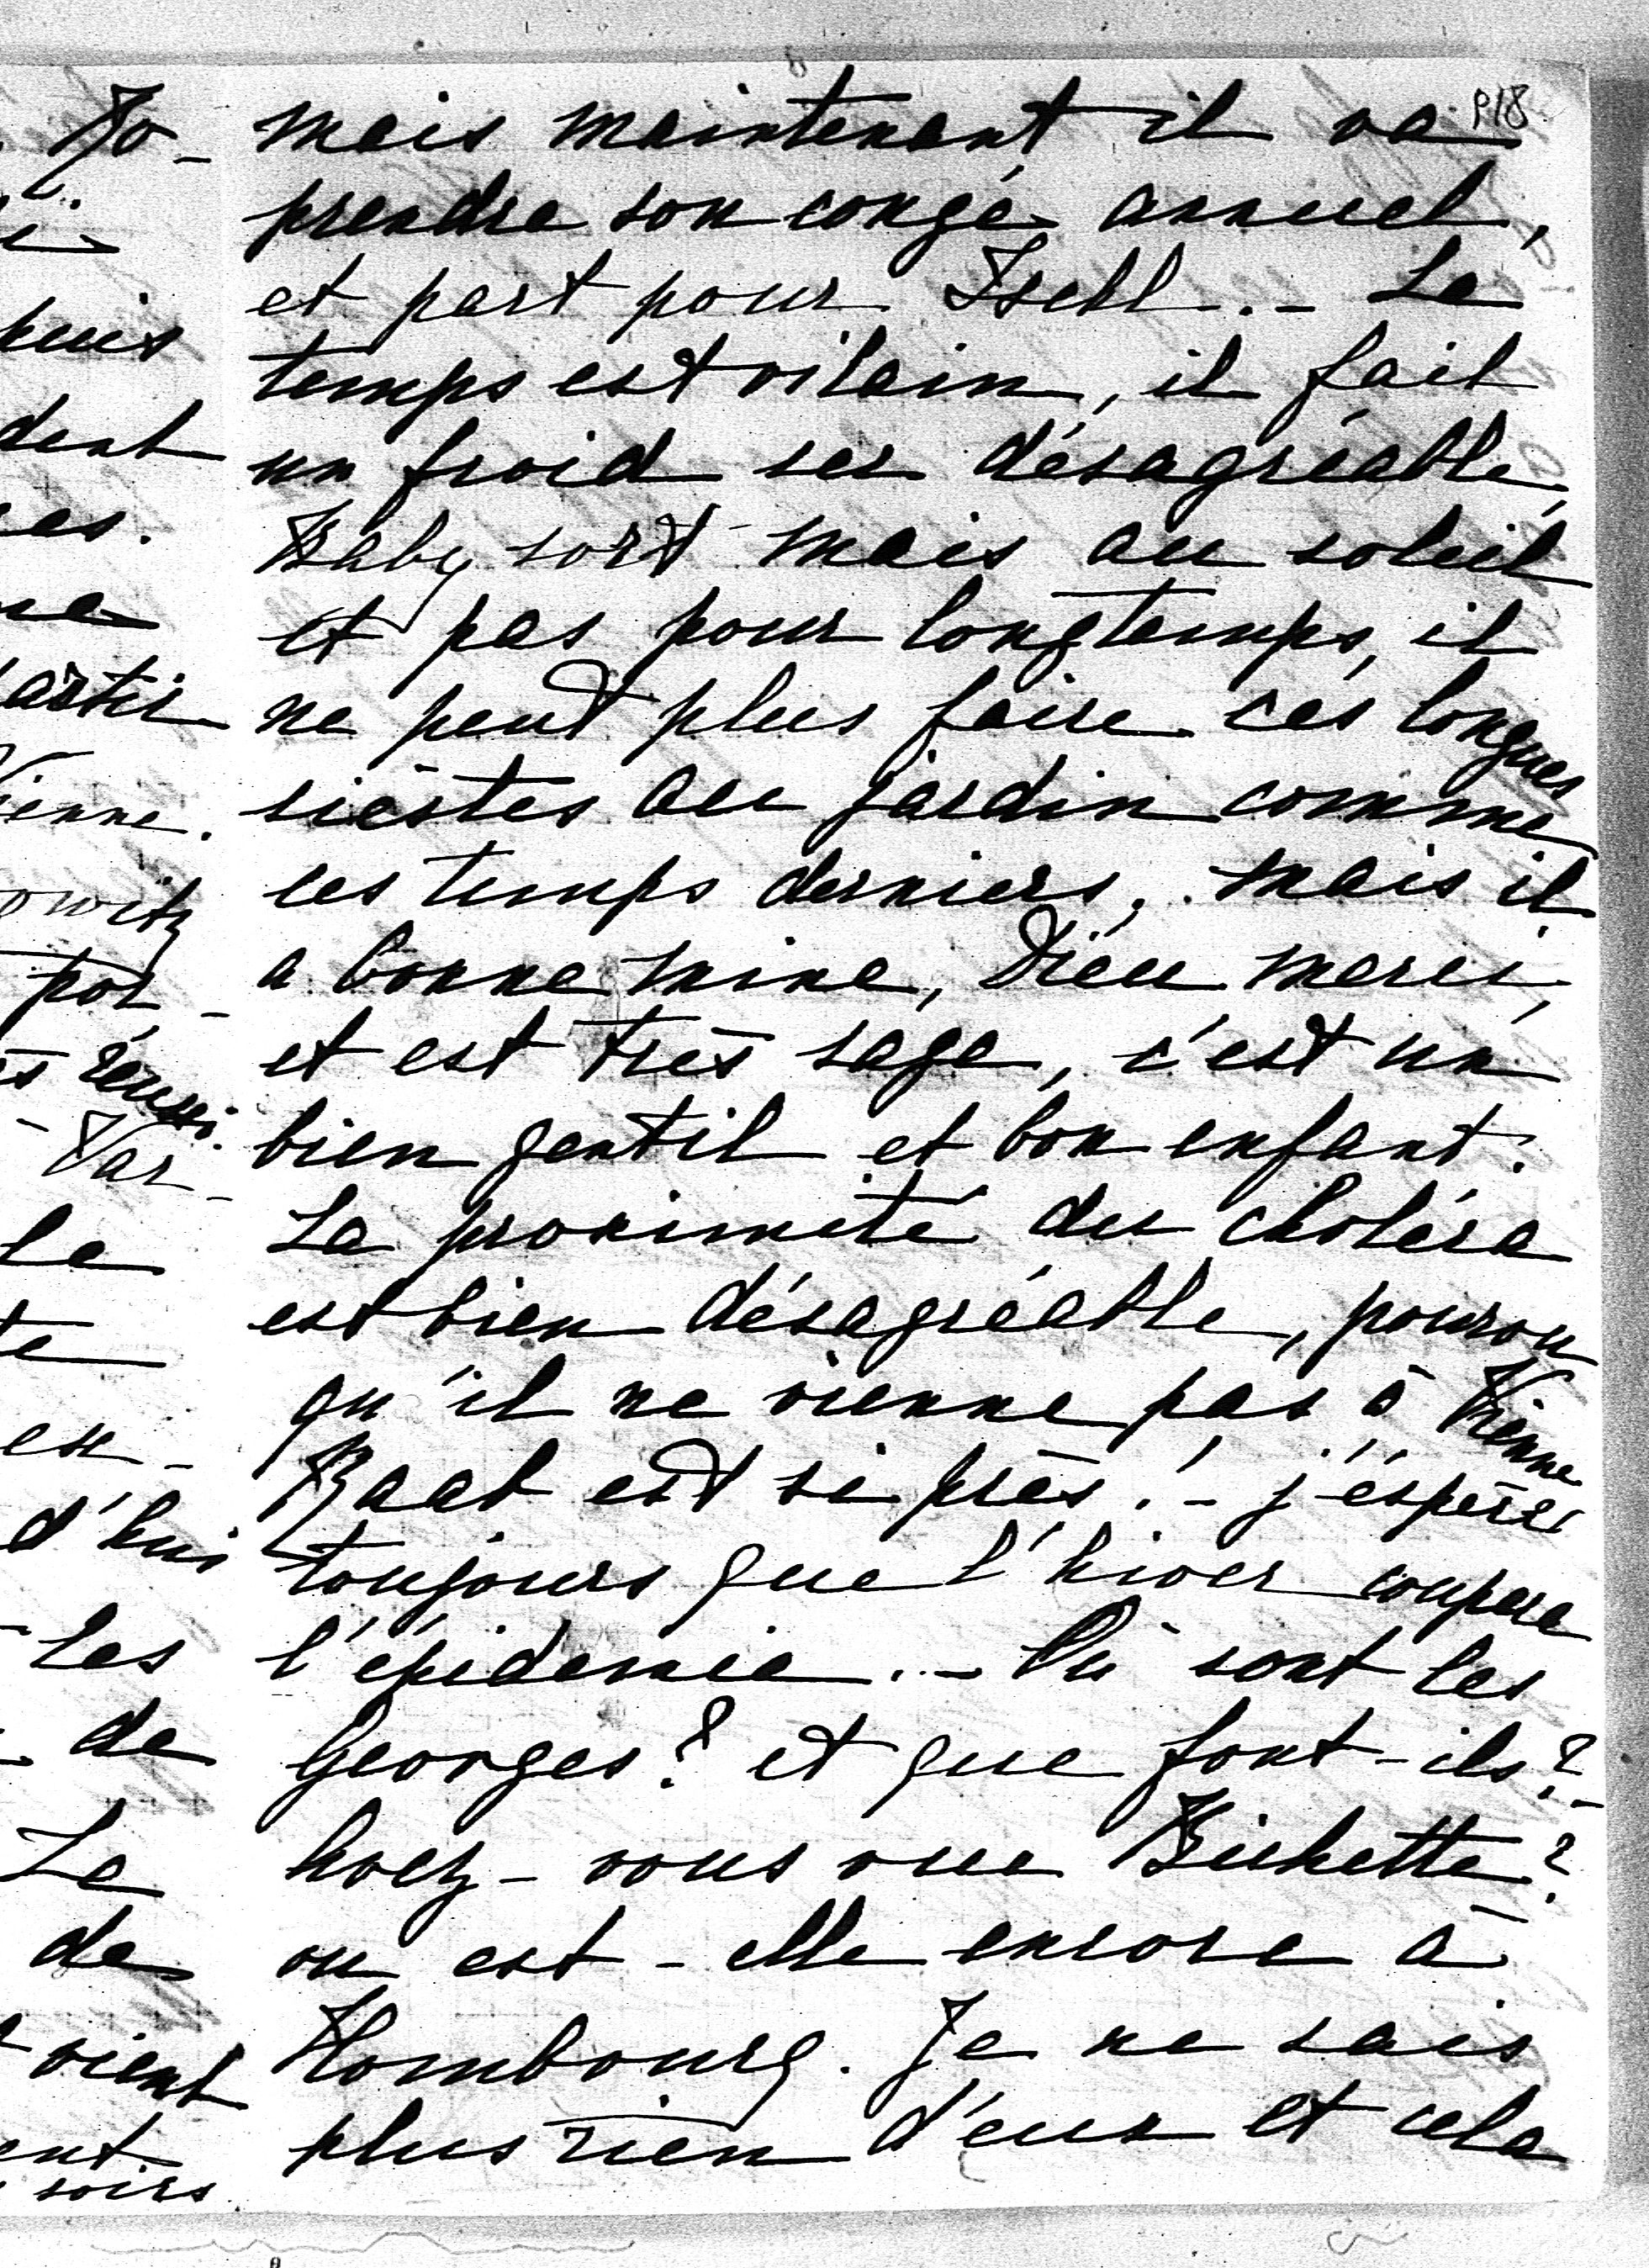 P18
mais maintenant il va
prendre son congé annuel,
et part pour Ischl. - Le
temps est vilain, il fait
un froid sec désagréable,
Baby sort mais au soleil
et pas pour longtemps, il
ne peut plus faire ces longues
siéstes au jardin comme
ces temps derniers, mais il
a bonne mine, Dieu merci,
et est très sage, c'est un
bien gentil et bon enfant.
La proximité du choléra
est bien désagréable, pourvu
qu'il ne vienne pas à Vienne
Raab est si près! - j'éspère
toujours que l'hiver coupera
l'épidemie. - Où sont les
Georges? et que font-ils? -
-vous vue Bichette?
ou est-elle encore à
Hombourg. Je ne sais
plus rien d'eux et cela
puis
dent
es.
artir
Vienne.
owitz
por-
réussi.
Var-
le
te
ex-
d'hui
Les
de
Le
de
vient
ent
soirs